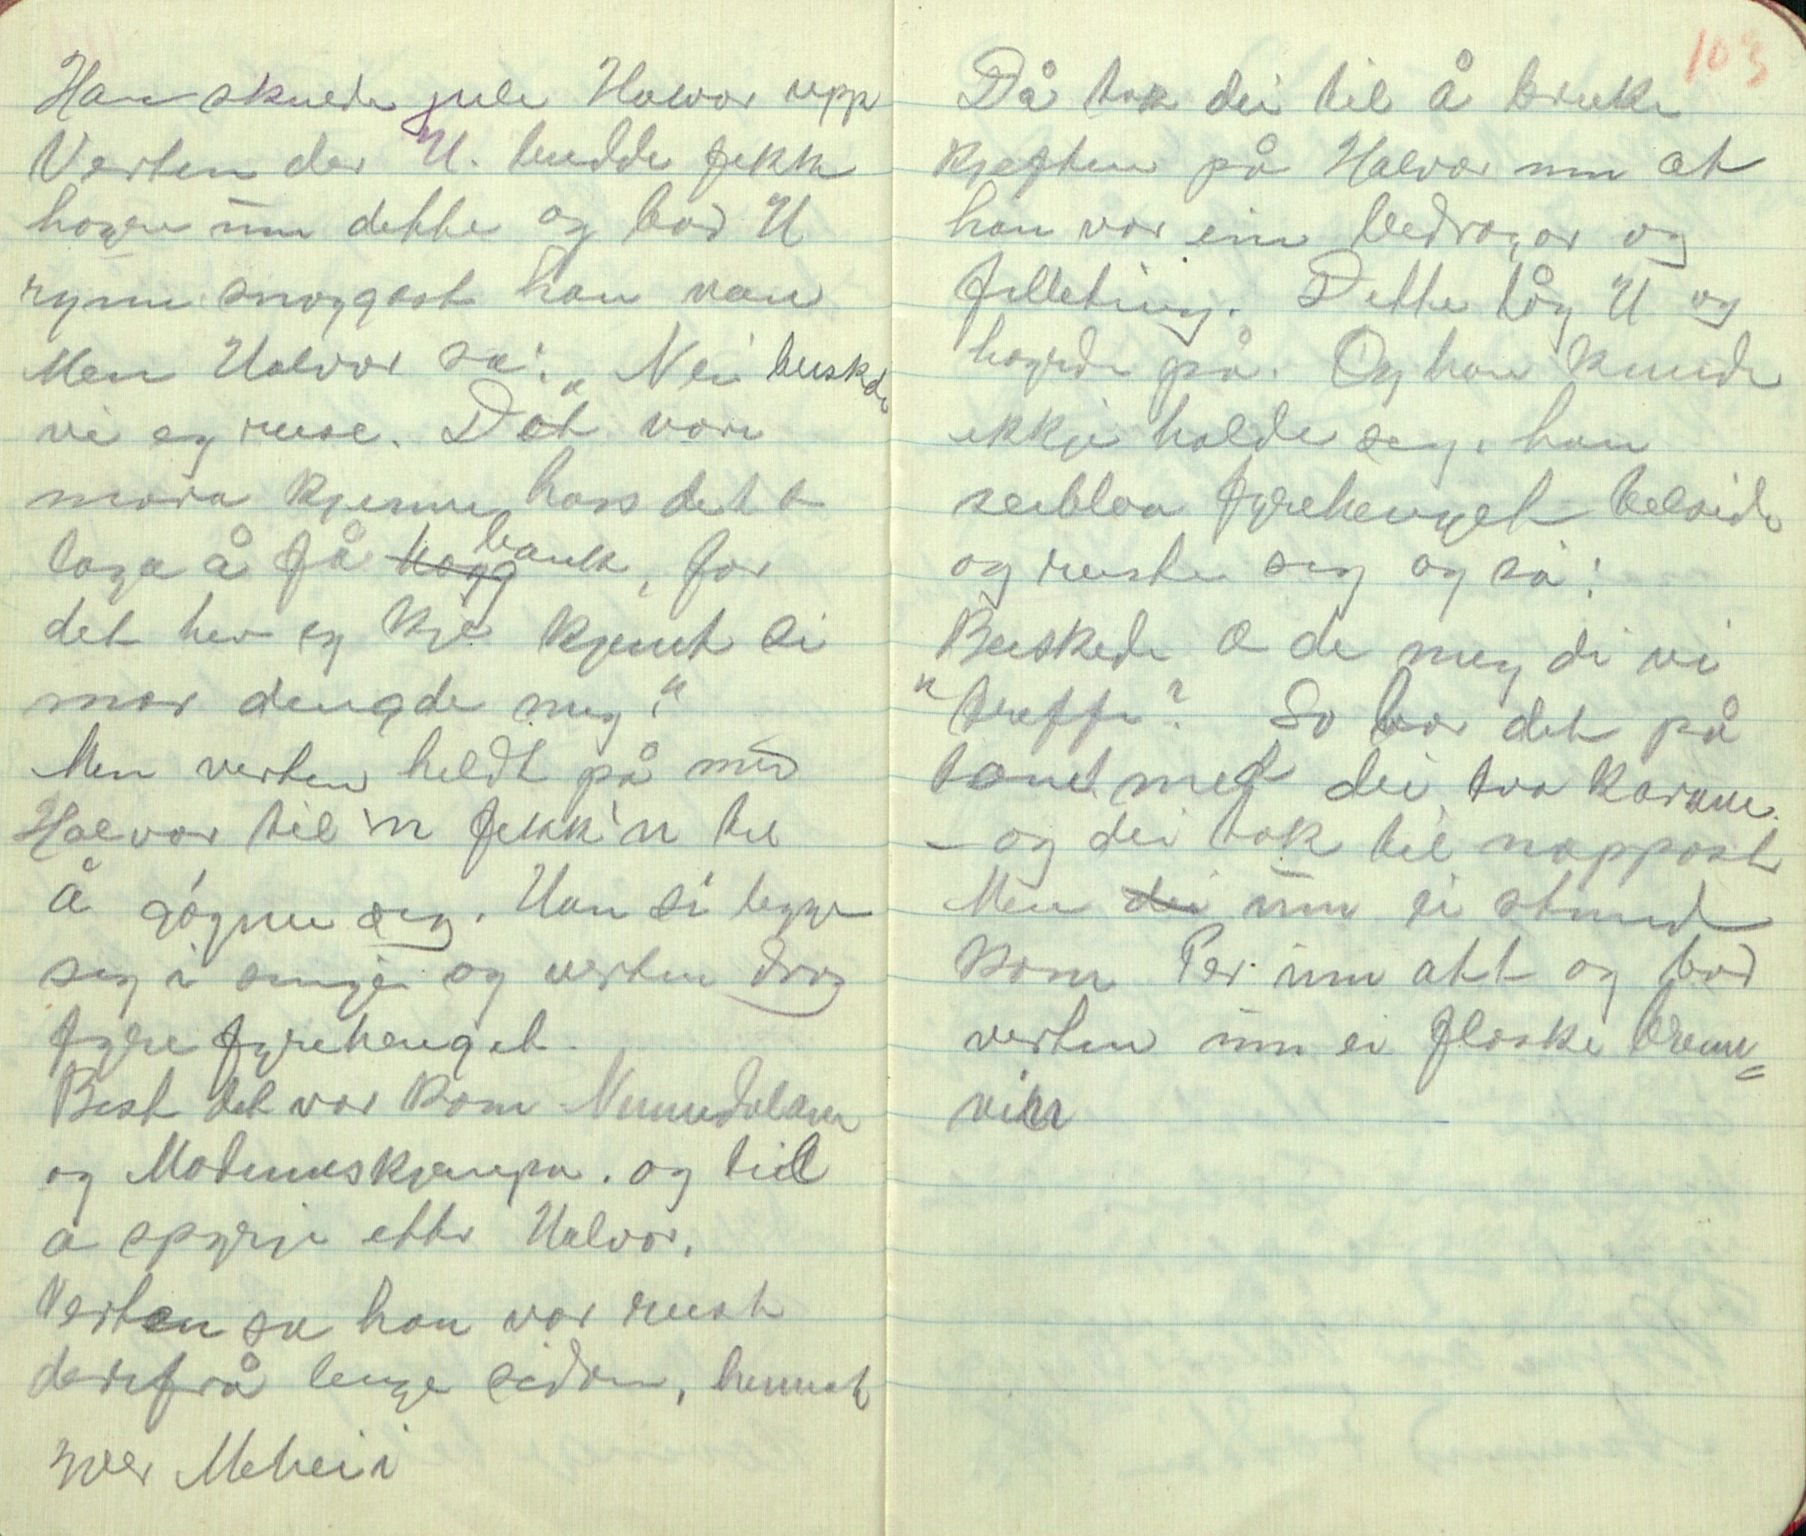 Han skulde jule Halvor upp
Verten der H. budde fekk
høyre um dette og bad H
ryme snøggast han vann
Men Halvor sa: „Nei buskde
vi eg ruse. Dæt vore
mora kjenne hoss det æ
laga å få hogg bank, for
det hev eg kje kjent si
mor dengde meg."
Men verten heldt på med
Halvor til 'n fekk 'n til
å gøyme seg. Han si leggje
seg i sengje og verten drog
fyre fyrehenget.
Best det var kom Numedalen
og Modumskjempa. og til
å spyrje etter Halvor.
Verten sa han var reist
derifrå lenge sidan, heimat
yver Meheii
103
Då tok dei til å bruke
kjeften på Halvor um at
han var ein bedragar og
filleting. Dette låg H og
høyrde på. Og han kunde
ikkje halde seg, han
fyrehenget belside
og reiste seg og sa:
Buskede æ de meg di vi
"treffe"? So bar det på
tunet med dei tvo karane.
– og dei tok til nappast
Men dei um ei stund
kom Per inn att og bad
verten um ei flaske brenne=
vin